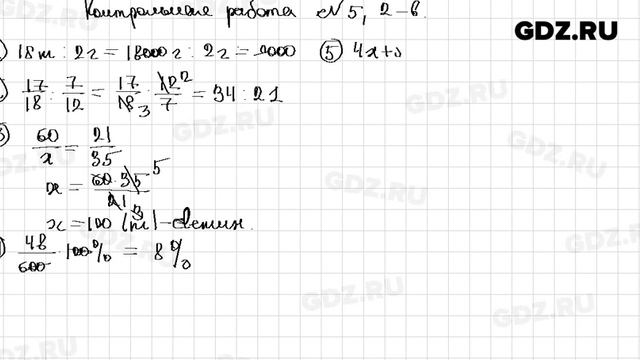 Контрольная работа №5, 2-в.
GDZ.RU
18т : 2г = 18000г : 2г = 9000
5) 4x+
17/18 : 7/12 = 17/18 3 · 12 2/7 = 34 : 21
3) 60/x = 21/35
x = 60·35 5/21 3
x = 100 (т)
48/600 · 100% = 8%